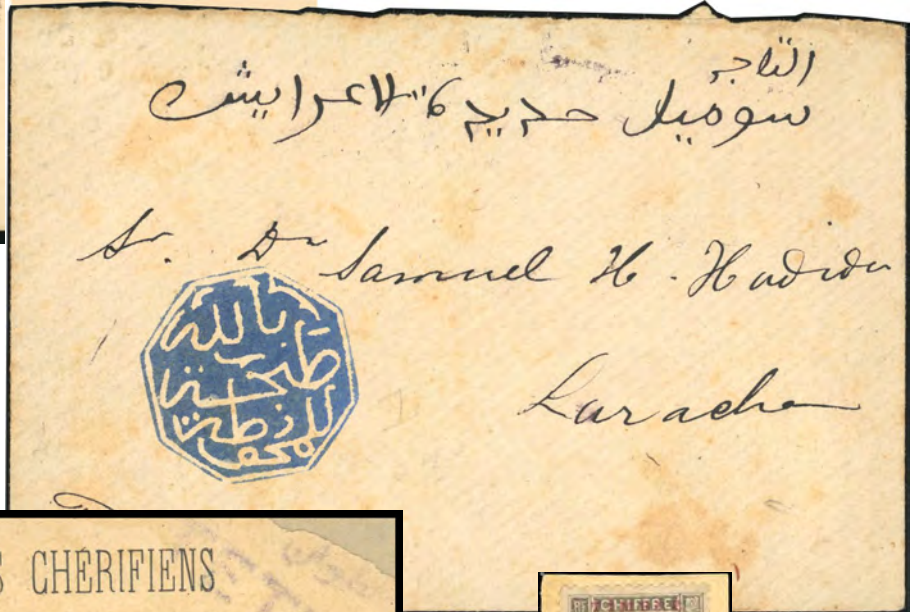 التاجر
سومیل حديد العرايش
Sr. Dn Samuel H. Hadida
Larache
بالله
طنجة
S CHÉRIFIENS
CHIFFRE